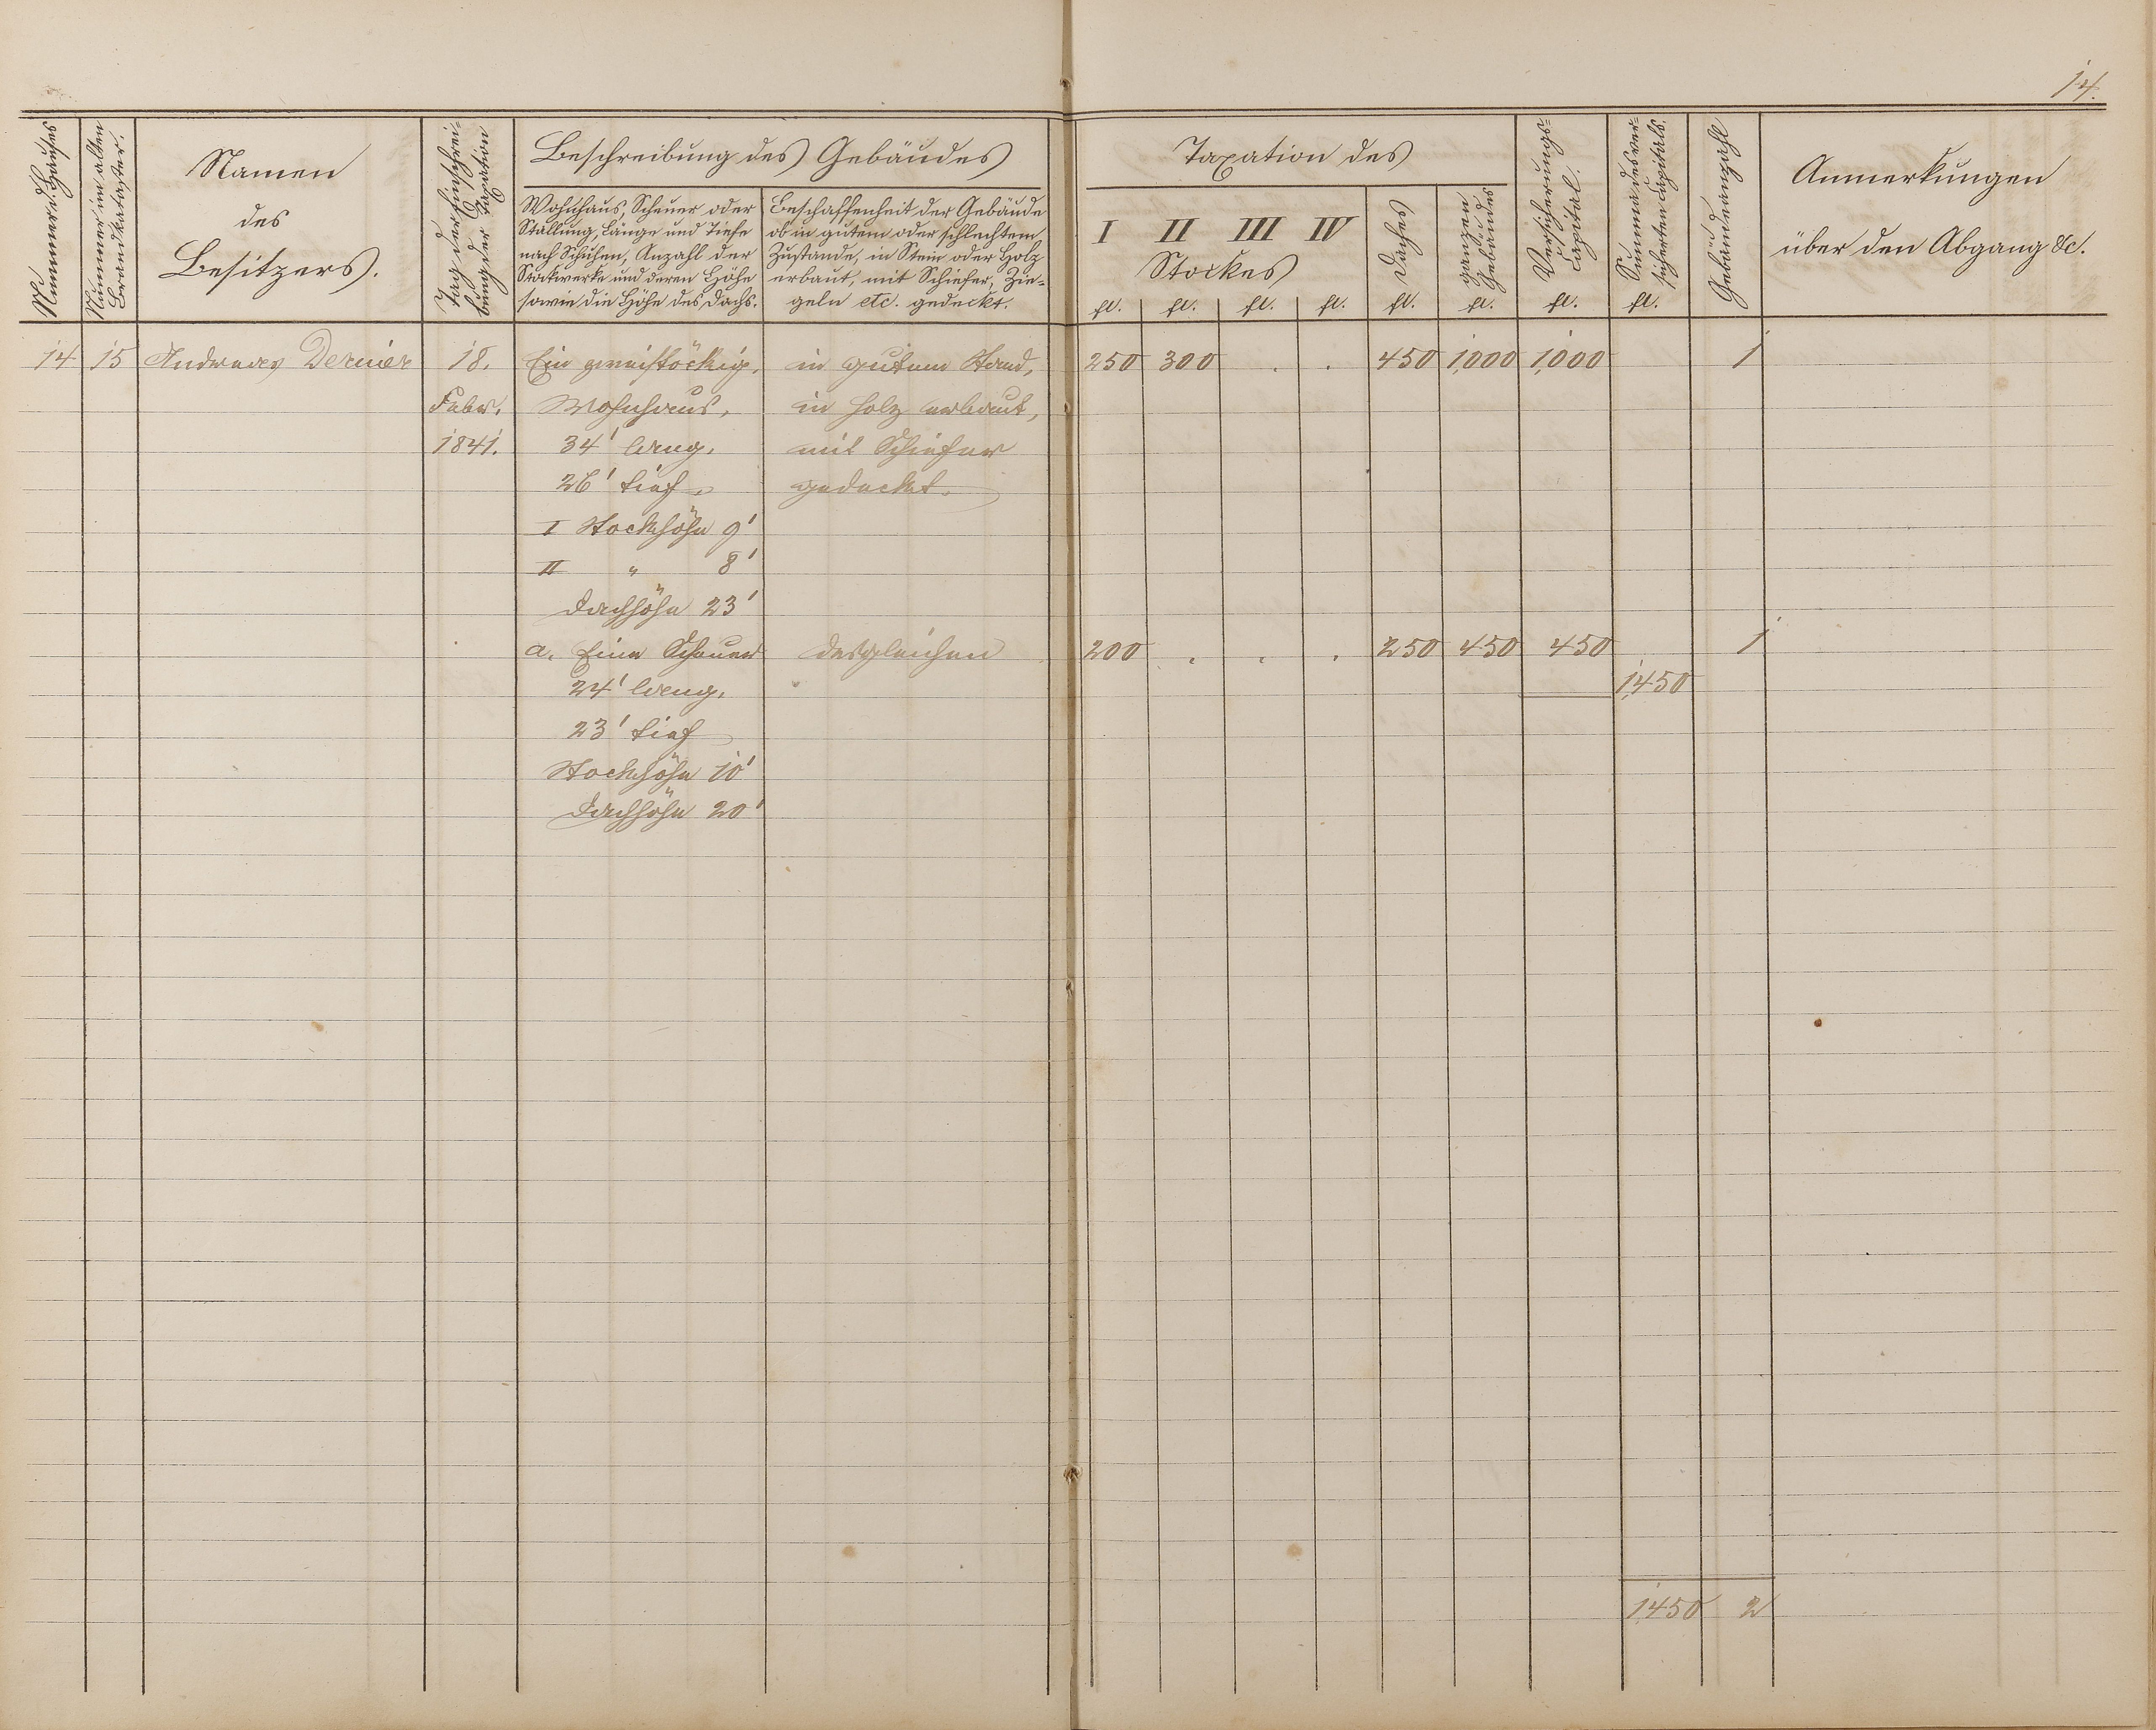 14.
Nummer d. Hauses
Nummer im alten
Brandkataster.
Namen
des
Besitzers.
Tag der Einschrei-
bung der Taxation
Beschreibung des Gebäudes
Wohnhaus, Scheuer oder
Stallung, Länge und Tiefe
nach Schuhen, Anzahl der
Stockwerke und deren Höhe
sowie die Höhe des Dachs.
Beschaffenheit der Gebäude
ob in gutem oder schlechtem
Zustande, in Stein oder Holz
erbaut, mit Schiefer, Zie-
geln etc. gedeckt.
Taxation des
I II III IV
Stockes
Daches
ganzen
Gebäudes
Versicherungs-
Capital.
Summa des ver-
sicherten Capitals.
Gebäudeanzahl
Anmerkungen
über den Abgang &c.
fl. fl. fl. fl. fl. fl. fl. fl.
14 15 Andreas Dernier 18. Ein zweistöckig. in gutem Stand, 250 300 . . 450 1,000 1,000 1
Febr. Wohnhaus, in Holz erbaut,
1841. 34' lang. mit Schiefer
26' tief. gedeckt.
I Stockhöhe 9'
II " 8'
Dachhöhe 23'
a. Eine Scheuer desgleichen 200 . . . 250 450 450 1
24' lang. 1,450
23' tief
Stockhöhe 10'
Dachhöhe 20'
1,450 2